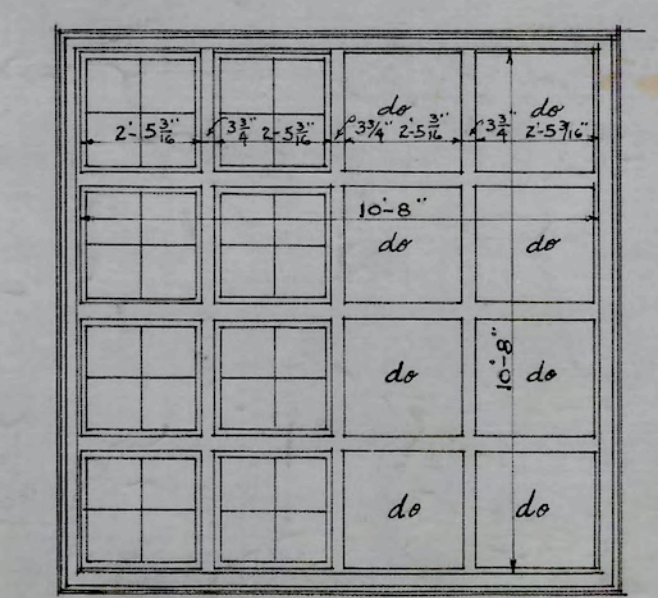 do do
2'-5 3/16" 3 3/4" 2-5 3/16" 3 3/4" 2'-5 3/16" 3 3/4" 2'-5 3/16"
10'-8"
do do
do 10'-8" do
do do